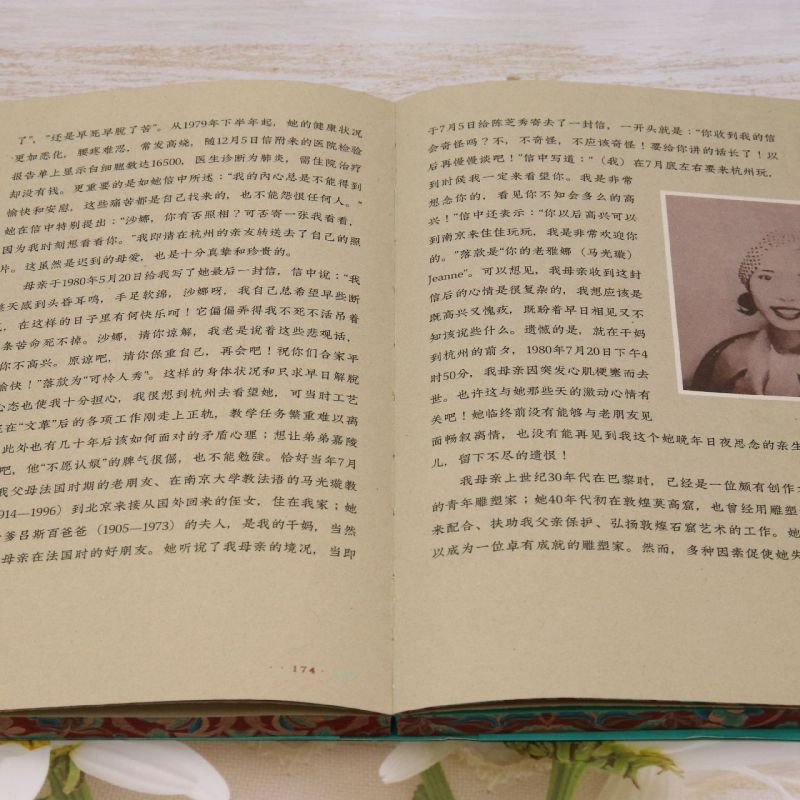 了”，“还是早死早脱了苦”。从1979年下半年起，她的健康状况
更如恶化，腰疼难忍，常发高烧，随12月5日信附来的医院检验
报告单上显示白细胞数达16500，医生诊断为肺炎，需住院治疗
却没有钱。更重要的是如她信中所述：“我的内心总是不能得到
愉快和安慰，这些痛苦都是自己找来的，也不能怨恨任何人。”
她在信中特别提出：“沙娜，你有否照相？可否寄一张我看看，
因为我时刻想看看你。”我即请在杭州的亲友转送去了自己的照
片。这虽然是迟到的母爱，也是十分真挚和珍贵的。
母亲于1980年5月20日给我写了她最后一封信，信中说：“我
天感到头昏耳鸣，手足软绵，沙娜呀，我自己总希望早些断
，在这样的日子里有何快乐呵！它偏偏弄得我不死不活吊着
条苦命死不掉。沙娜，请你谅解，我老是说着这些悲观话，
你不高兴。原谅吧，请你保重自己，再会吧！祝你们合家平
愉快！”落款为“可怜人秀”。这样的身体状况和只求早日解脱
心态也使我十分担心，我很想到杭州去看望她，可当时工艺
在“文革”后的各项工作刚走上正轨，教学任务繁重难以离
此外也有几十年后该如何面对的矛盾心理；想让弟弟嘉陵
吧，他“不愿认娘”的脾气很倔，也不能勉强。恰好当年7月
我父母法国时期的老朋友、在南京大学教法语的马光璇教
914—1996）到北京来接从国外回来的侄女，住在我家；她
爹吕斯百爸爸（1905—1973）的夫人，是我的干妈，当然
母亲在法国时的好朋友。她听说了我母亲的境况，当即
174
于7月5日给陈芝秀寄去了一封信，一开头就是：“你收到我的信
会奇怪吗？不，不奇怪，不应该奇怪！要给你讲的话长了！以
后再慢慢谈吧！”信中写道：“（我）在7月底左右要来杭州玩，
到时候我一定来看望你。我是非常
想念你的，看见你不知会多么的高
兴！”信中还表示：“你以后高兴可以
到南京来住住玩玩，我是非常欢迎你
的。”落款是“你的老雅娜（马光璇）
Jeanne”。可以想见，我母亲收到这封
信后的心情是很复杂的，我想应该是
既高兴又愧疚，既盼着早日相见又不
知该说些什么。遗憾的是，就在干妈
到杭州的前夕，1980年7月20日下午4
时50分，我母亲因突发心肌梗塞而去
世。也许这与她那些天的激动心情有
关吧！她临终前没有能够与老朋友见
面畅叙离情，也没有能再见到我这个她晚年日夜思念的亲生
儿，留下不尽的遗恨！
我母亲上世纪30年代在巴黎时，已经是一位颇有创作
的青年雕塑家；她40年代初在敦煌莫高窟，也曾经用雕塑
来配合、扶助我父亲保护、弘扬敦煌石窟艺术的工作。她
以成为一位卓有成就的雕塑家。然而，多种因素促使她失